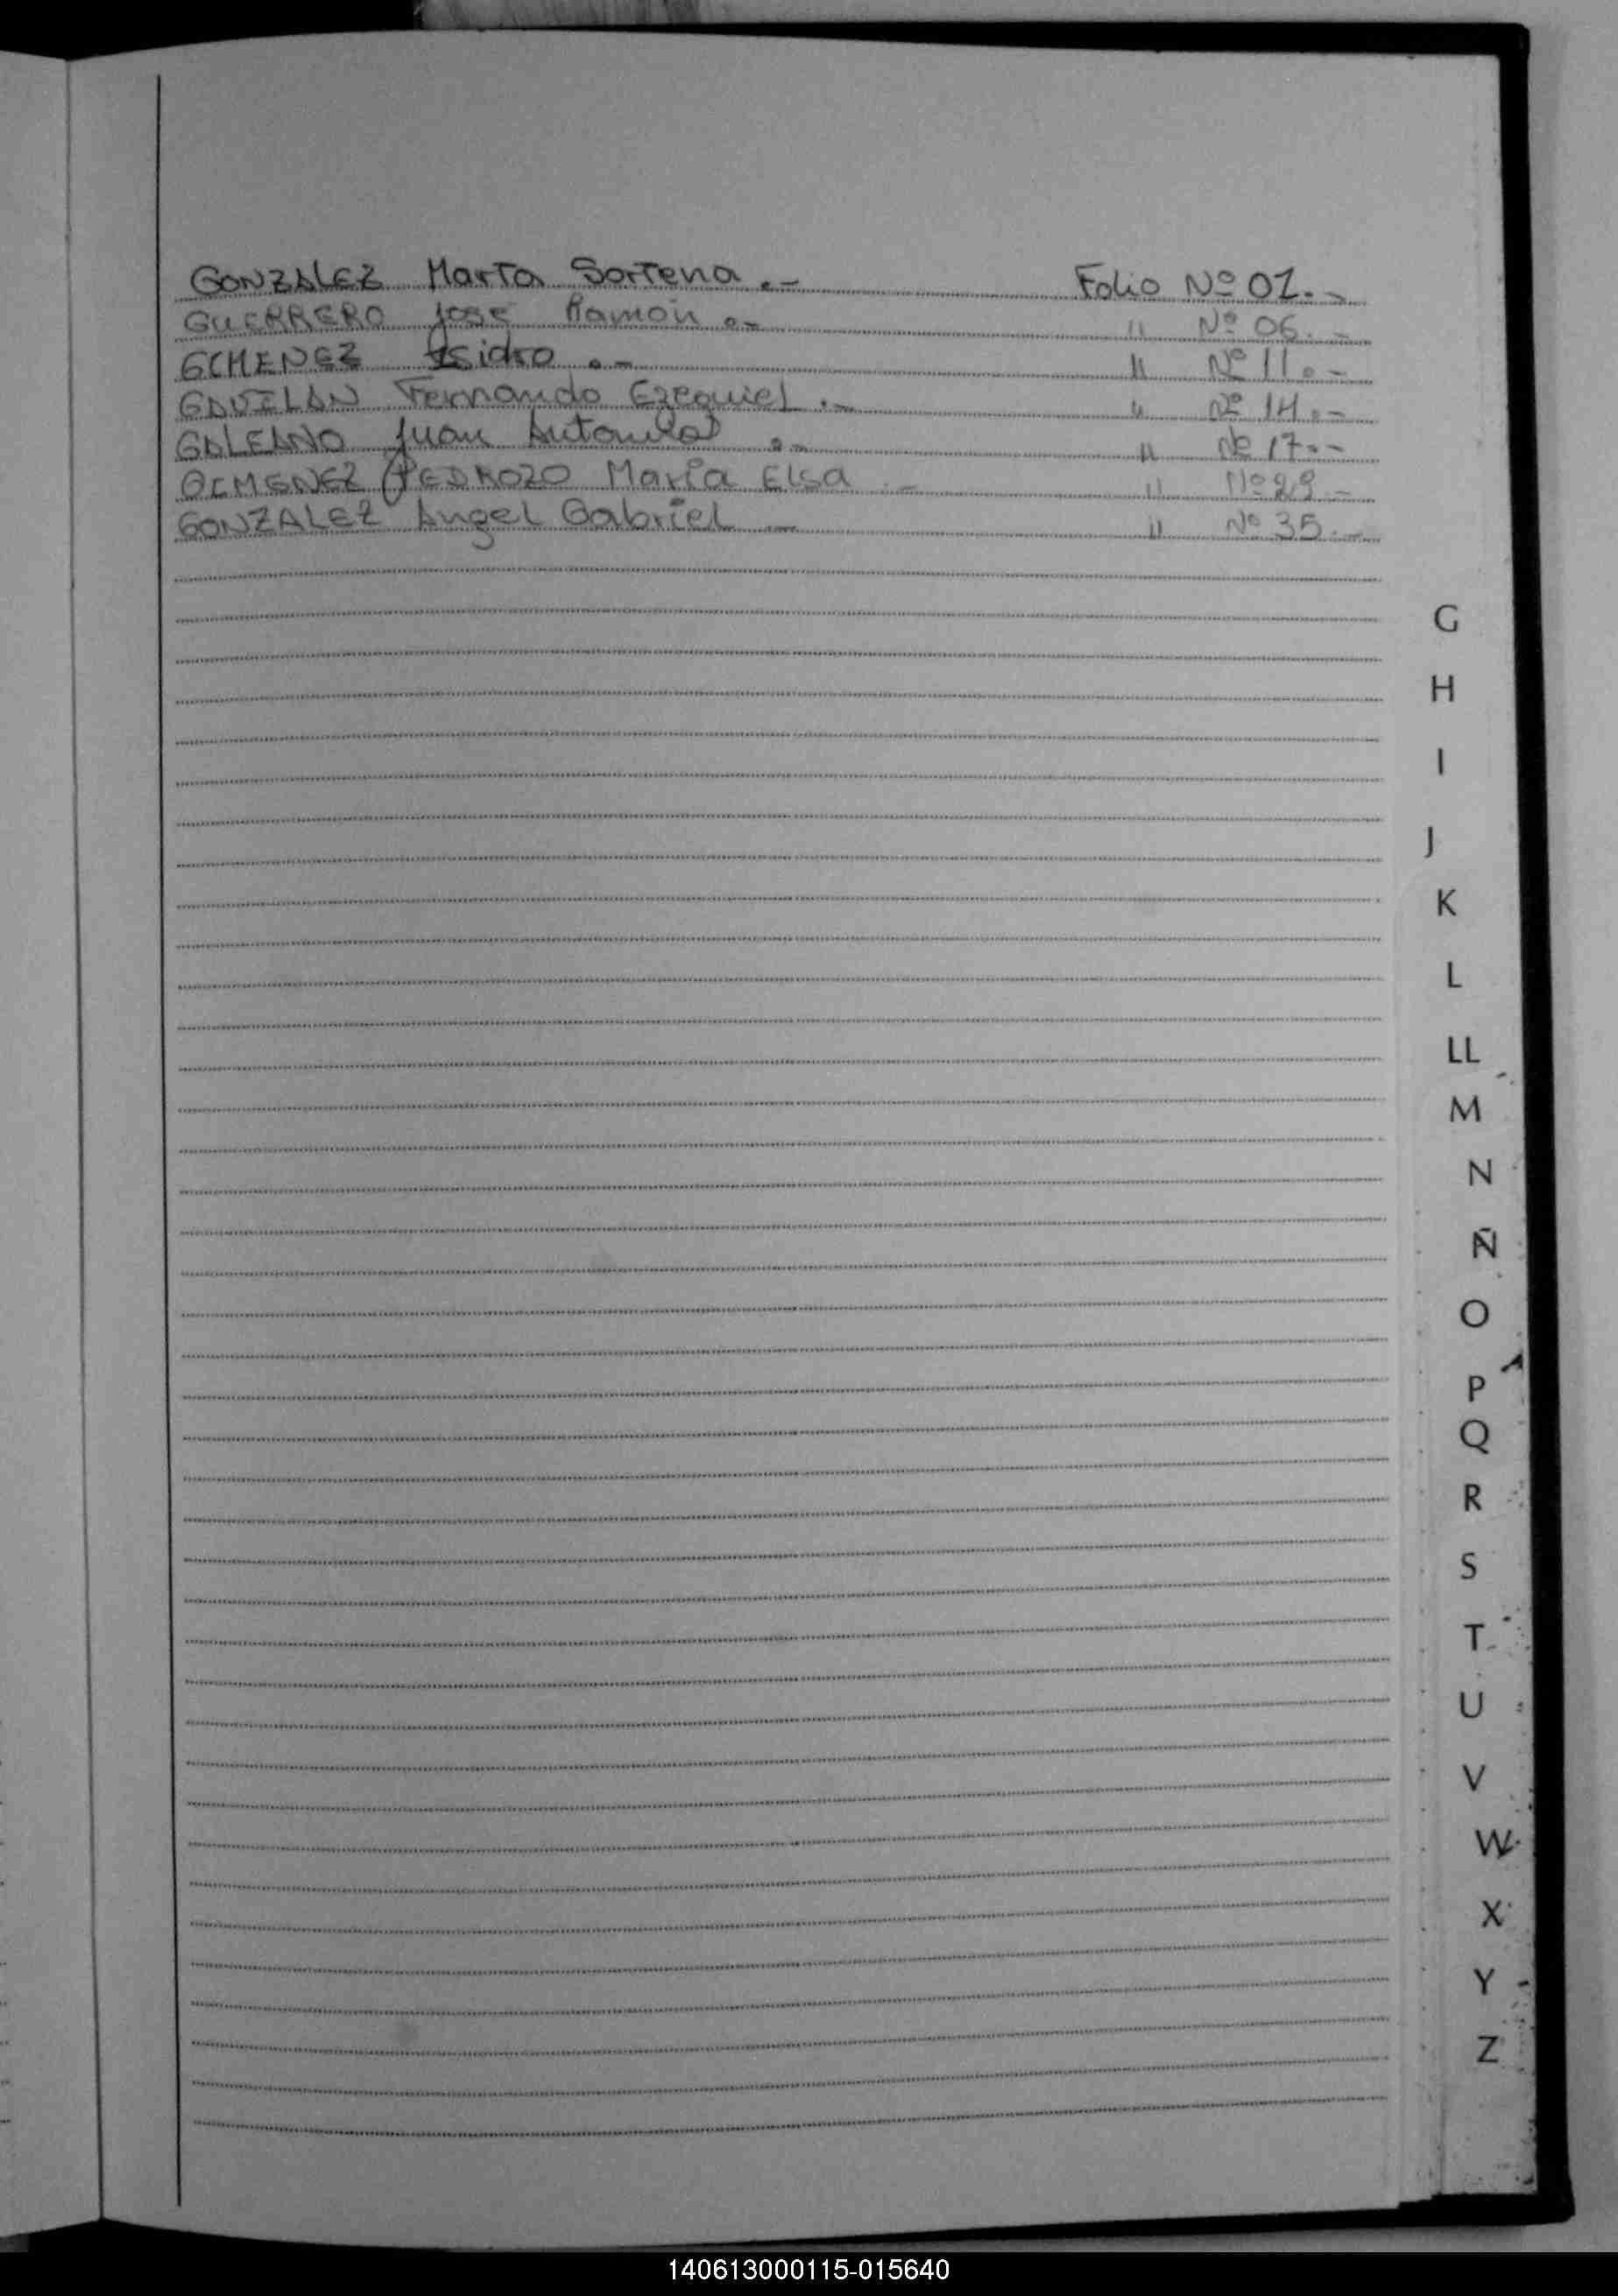 GONZALEZ Marta Sortena.- Folio Nº 01.-
GUERRERO José Ramón.- " Nº 06.-
GIMENEZ Isidro.- " Nº 11.-
GAVILAN Fernando Ezequiel.- " Nº 14.-
GALEANO Juan Antonio.- " Nº 17.-
GIMENEZ PEDROZO María Elsa.- " Nº 29.-
GONZALEZ Angel Gabriel.- " Nº 35.-
G
H
I
J
K
L
LL
M
N
Ñ
O
P
Q
R
S
T
U
V
W
X
Y
Z
140613000115-015640